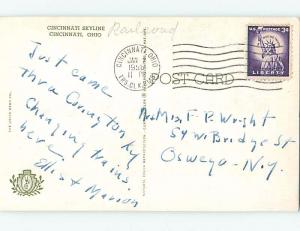 CINCINNATI SKYLINE
CINCINNATI, OHIO
Railroad
CINCINNATI, OHIO
JAN
1958
11
U.S. POSTAGE 3¢
LIBERTY
POST CARD
Just came
thru Covington Ky
Changing trains
here.
Ellis & Marion
Mr. + Mrs. F. P. Wright
54 W. Bridge St
Oswego - N.Y.